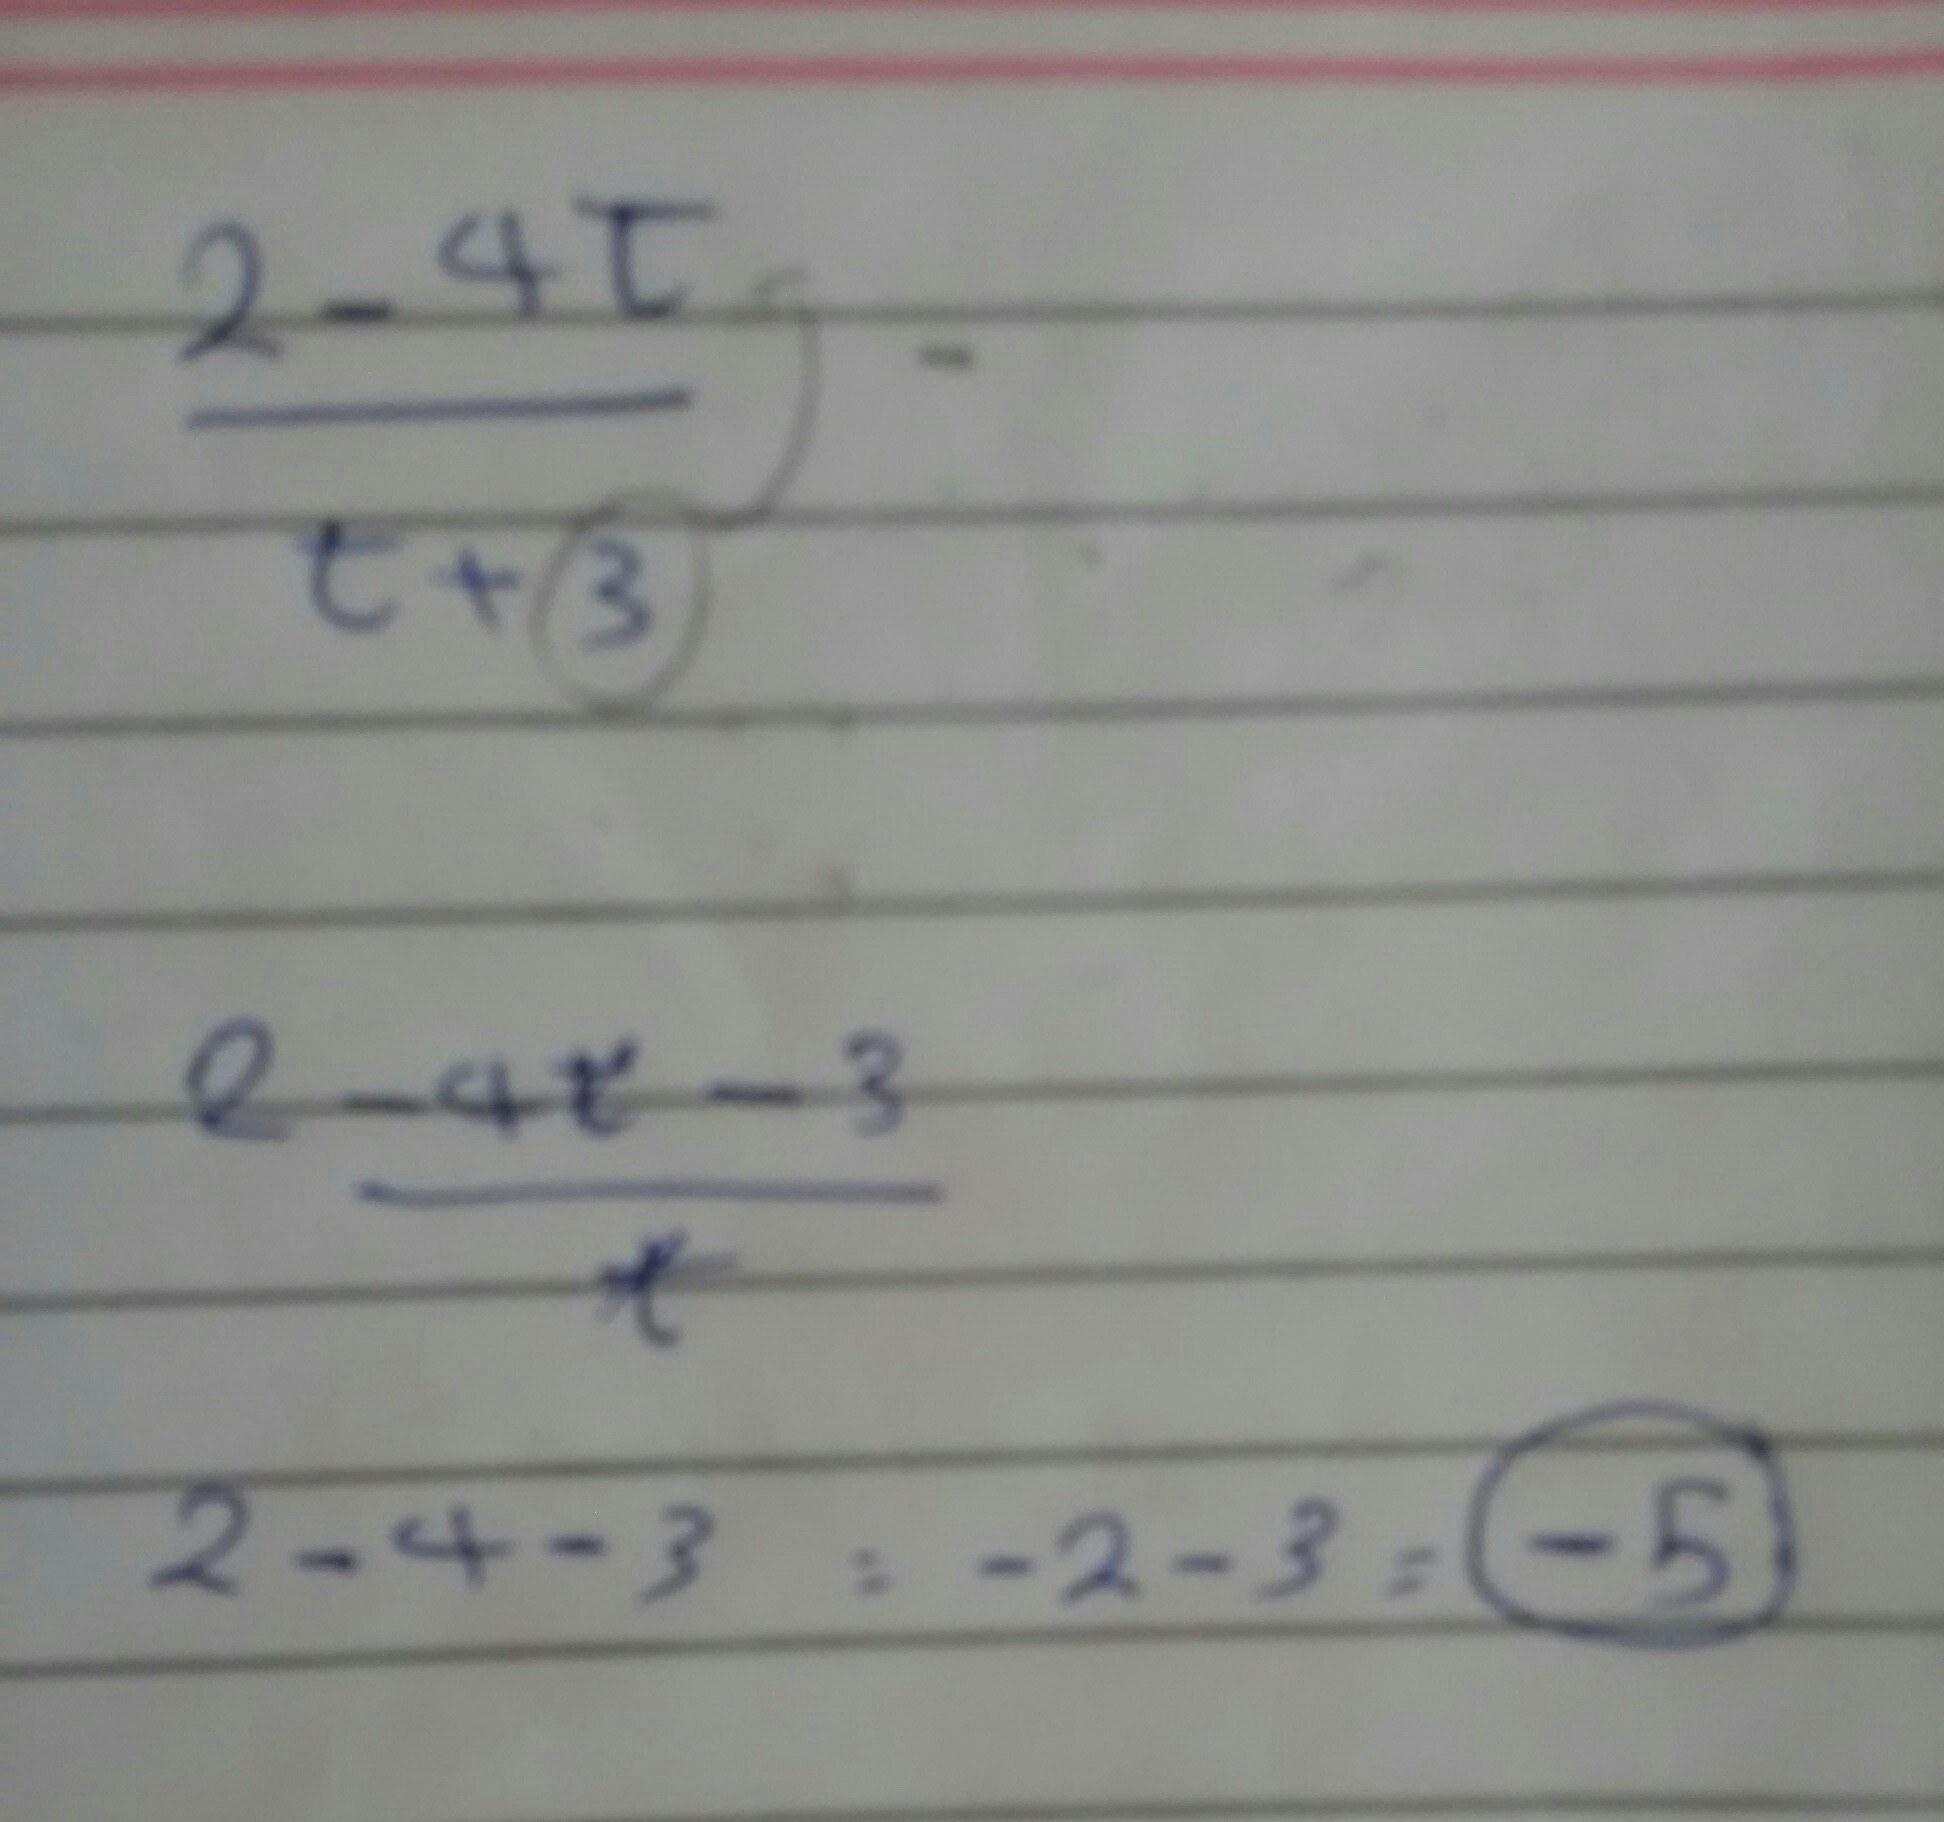 2 - 4t -
t + 3
2 - 4t - 3
t
2 - 4 - 3 = -2 - 3 = -5